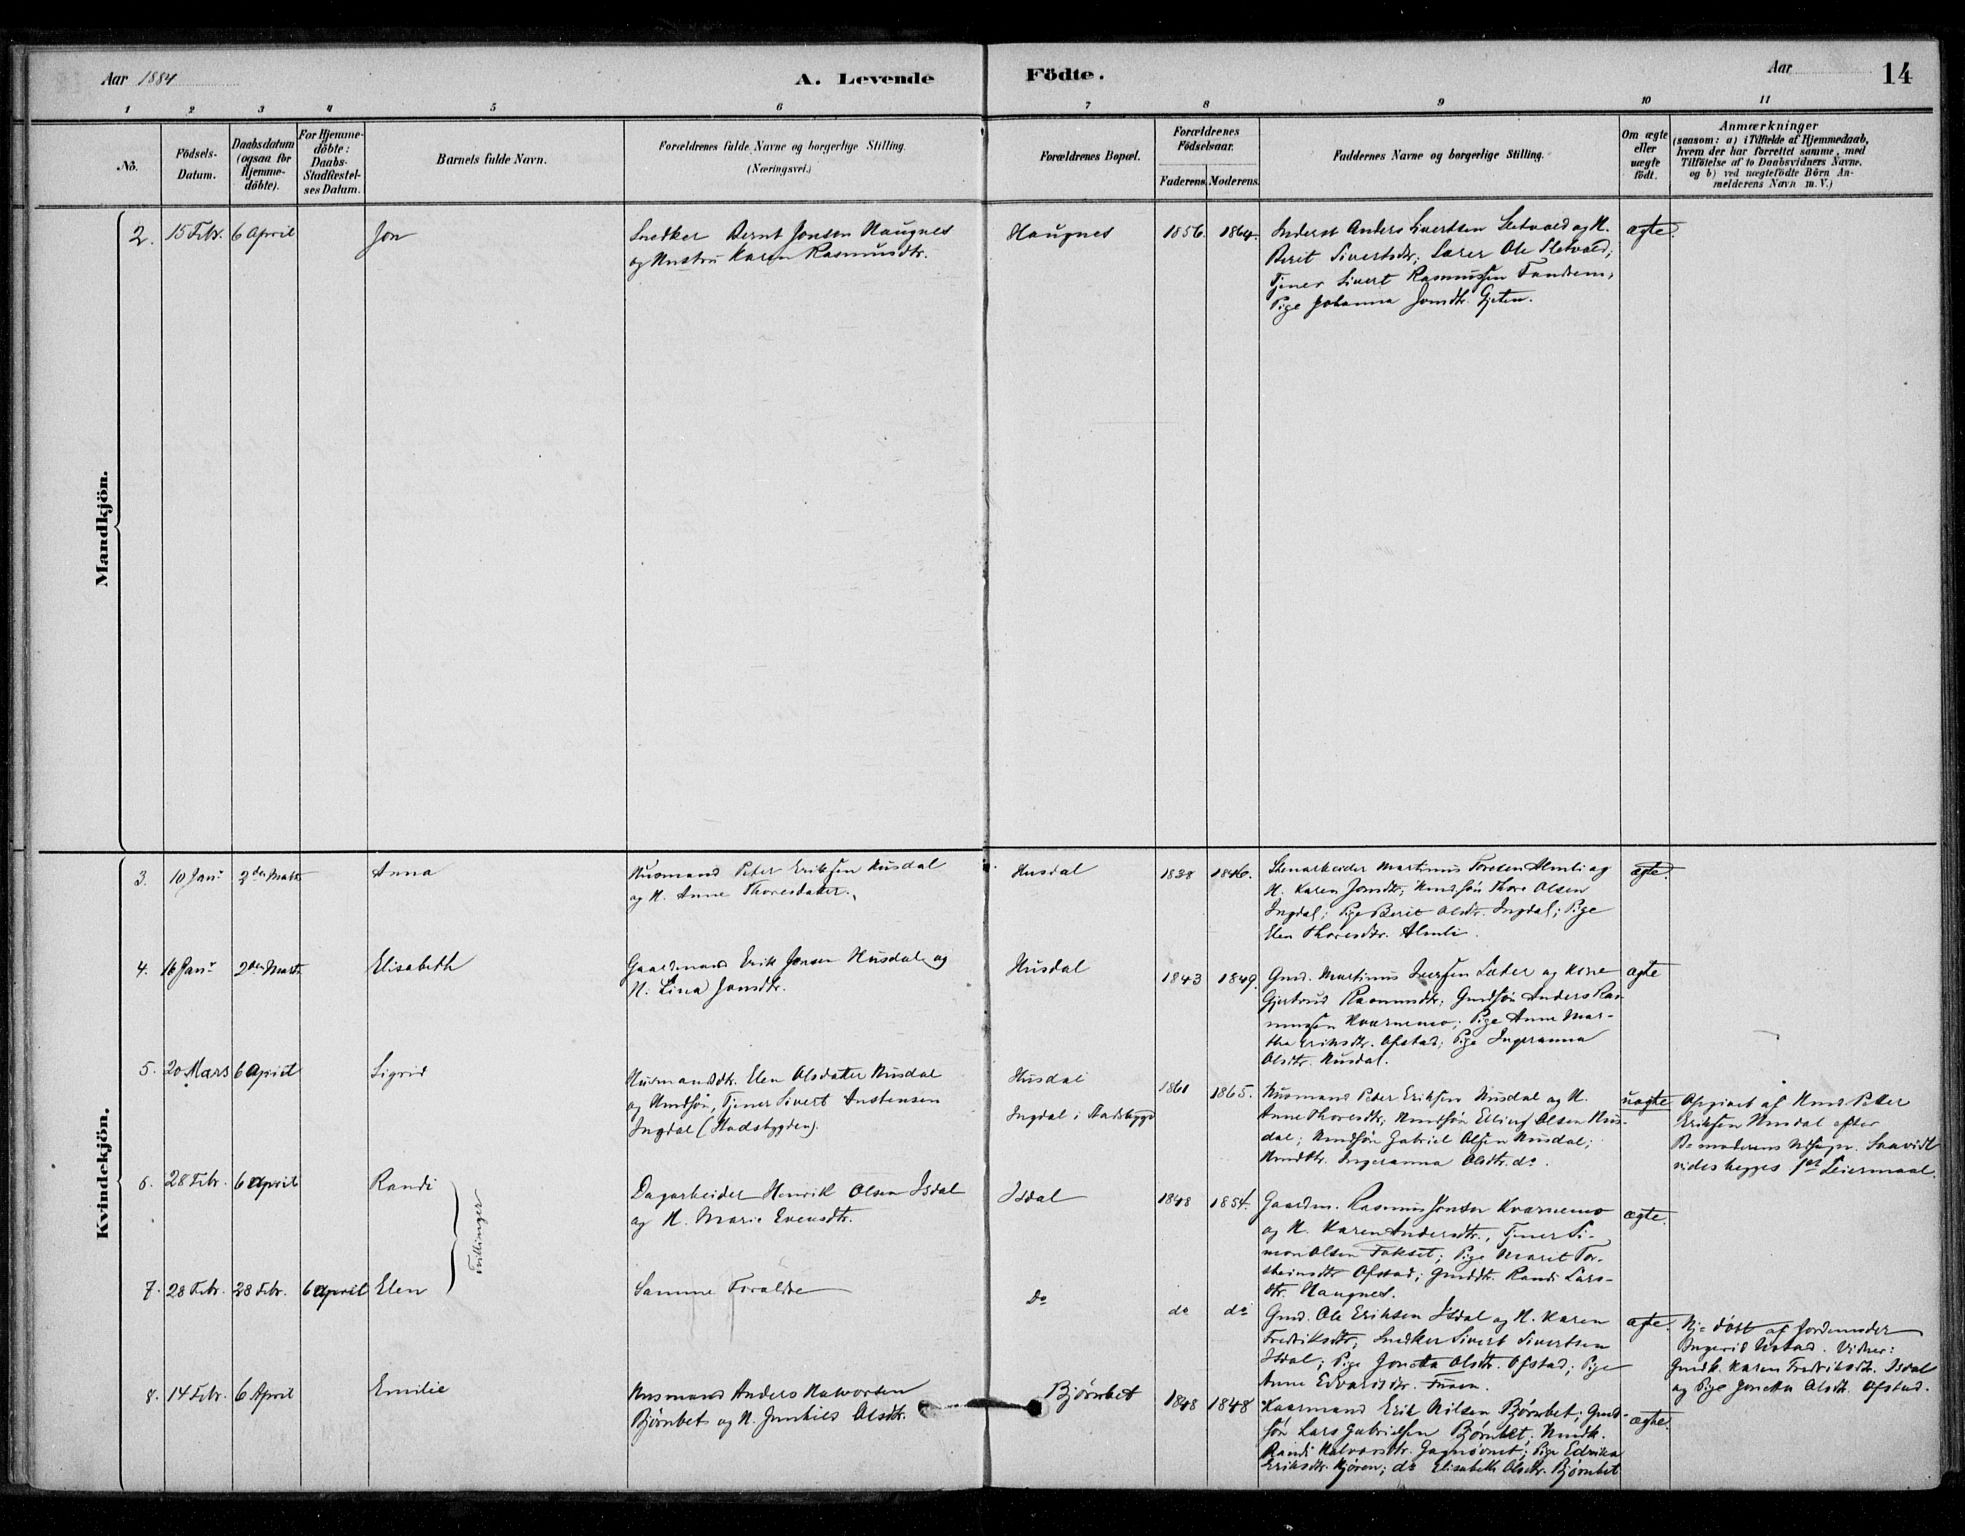 Aar 1884
A. Levende Födte.
Aar
14
1 2 3 4 5 6 7 8 9 10 11
No.
Födsels-Datum.
Daabsdatum (ogsaa for Hjemme-döbte).
For Hjemme-döbte: Daabs-Stadfæstel-ses Datum.
Barnets fulde Navn.
Forældrenes fulde Navne og borgerlige Stilling.
(Næringsvei.)
Forældrenes Bopæl.
Forældrenes Födselsaar.
Faderens. Moderens.
Faddernes Navne og borgerlige Stilling.
Om ægte eller uægte födt.
Anmærkninger
(saasom: a) i Tilfælde af Hjemmedaab,
hvem der har forrettet samme, med
Tilföielse af to Daabsvidners Navne,
og b) ved uægtefödte Börn An-
melderens Navn m. V.)
Mandkjön.
2. 15 Febr. 6 April Jon
Snedker Bernt Jonsen Haugnes
og Hustru Karen Rasmusdtr.
Haugnes 1856. 1864.
Inderst Anders Sivertsen Sletvold og H.
Berit Sivertsdtr; Lærer Ole Sletvold;
Tjener Sivert Rasmussen Tandem;
Pige Johanna Jonsdtr. Gjeten.
ægte.
Kvindekjön.
3. 10 Janr 2den Marts Anna
Husmand Peter Eriksen Husdal
og H. Anne Thoresdatter.
Husdal 1828 1846.
Stenarbeider Martinus Toresen Almli og
H. Karen Jonsdtr; Husmsøn Thore Olsen
Ingdal; Pige Berit Olsdtr. Ingdal; Pige
Elen Thoresdtr. Almli.
ægte.
4. 16 Janr 2den Marts Elisabeth
Gaardmand Erik Jonsen Husdal og
H. Lina Jonsdtr.
Husdal 1843 1849.
Gmd. Martinus Iversen Sæter og Kone
Gjertrud Rasmusdtr; Gmdsøn Anders Ras-
mussen Kværnemo; Pige Anne Mar-
tha Eriksdtr. Ofstad; Pige Ingeranna
Olsdtr. Husdal.
ægte
5. 20 Mars 6 April Sigrid
Husmandsdtr. Elen Olsdatter Husdal
og Husmdsøn, Tjener Sivert Austensen
Ingdal (Stadsbygden).
Husdal
Ingdal i Stadsbygd
1861 1865.
Husmand Peter Eriksen Husdal og H.
Anne Thoresdtr; Husmdsøn Elling Olsen Hus-
dal; Husmdsøn Gabriel Olsen Husdal;
Husmdtr. Ingeranna Olsdtr. do.
uægte
Opgivet af Husmd Peter
Eriksen Husdal efter
Bemoderens Udsagn. Saavidt
vides begges 1ste Leiermaal.
6. 28 Febr. 6 April Randi
Dagarbeider Henrik Olsen Isdal
og H. Marie Evensdtr.
Isdal 1848 1854.
Gaardm. Rasmus Jonsen Kværnemo
og H. Karen Andersdtr., Tjener Si-
mon Olsen Fokset; Pige Marit Tor-
steinsdtr Ofstad; Gmddtr. Randi Lars-
dtr. Haugnes.
ægte.
Tvillinger
7. 28 Febr. 28 Febr. 6 April Elen
Samme Foræld re
Do
do do
Gmd. Ole Eriksen Isdal og H. Karen
Fredriksdtr; Snedker Sivert Sivertsen
Isdal; Pige Jonetta Olsdtr. Ofstad; Pige
Anne Edvardsdtr.
ægte.
Hj: døbt af Jordemoder
Ingerid. Vidner:
Gmdk. Karen Fredriksdtr. Isdal
og Pige Jonetta Olsdtr. Ofstad.
8. 14 Febr. 6 April Emilie
Husmand Anders Halvorsen
Bjørnbet og H. Gunhild Olsdtr.
Bjørnbet
1848 1848
Kaarmand Erik Nilsen Bjørnbet; Gmd-
søn Lars Gabrielsen Bjørnbet; Husmdk.
Randi Halvorsdtr.; Pige Edvika
Eriksdtr. Kjøren; do Elisabeth Olsdtr. Bjørnbet
ægte.